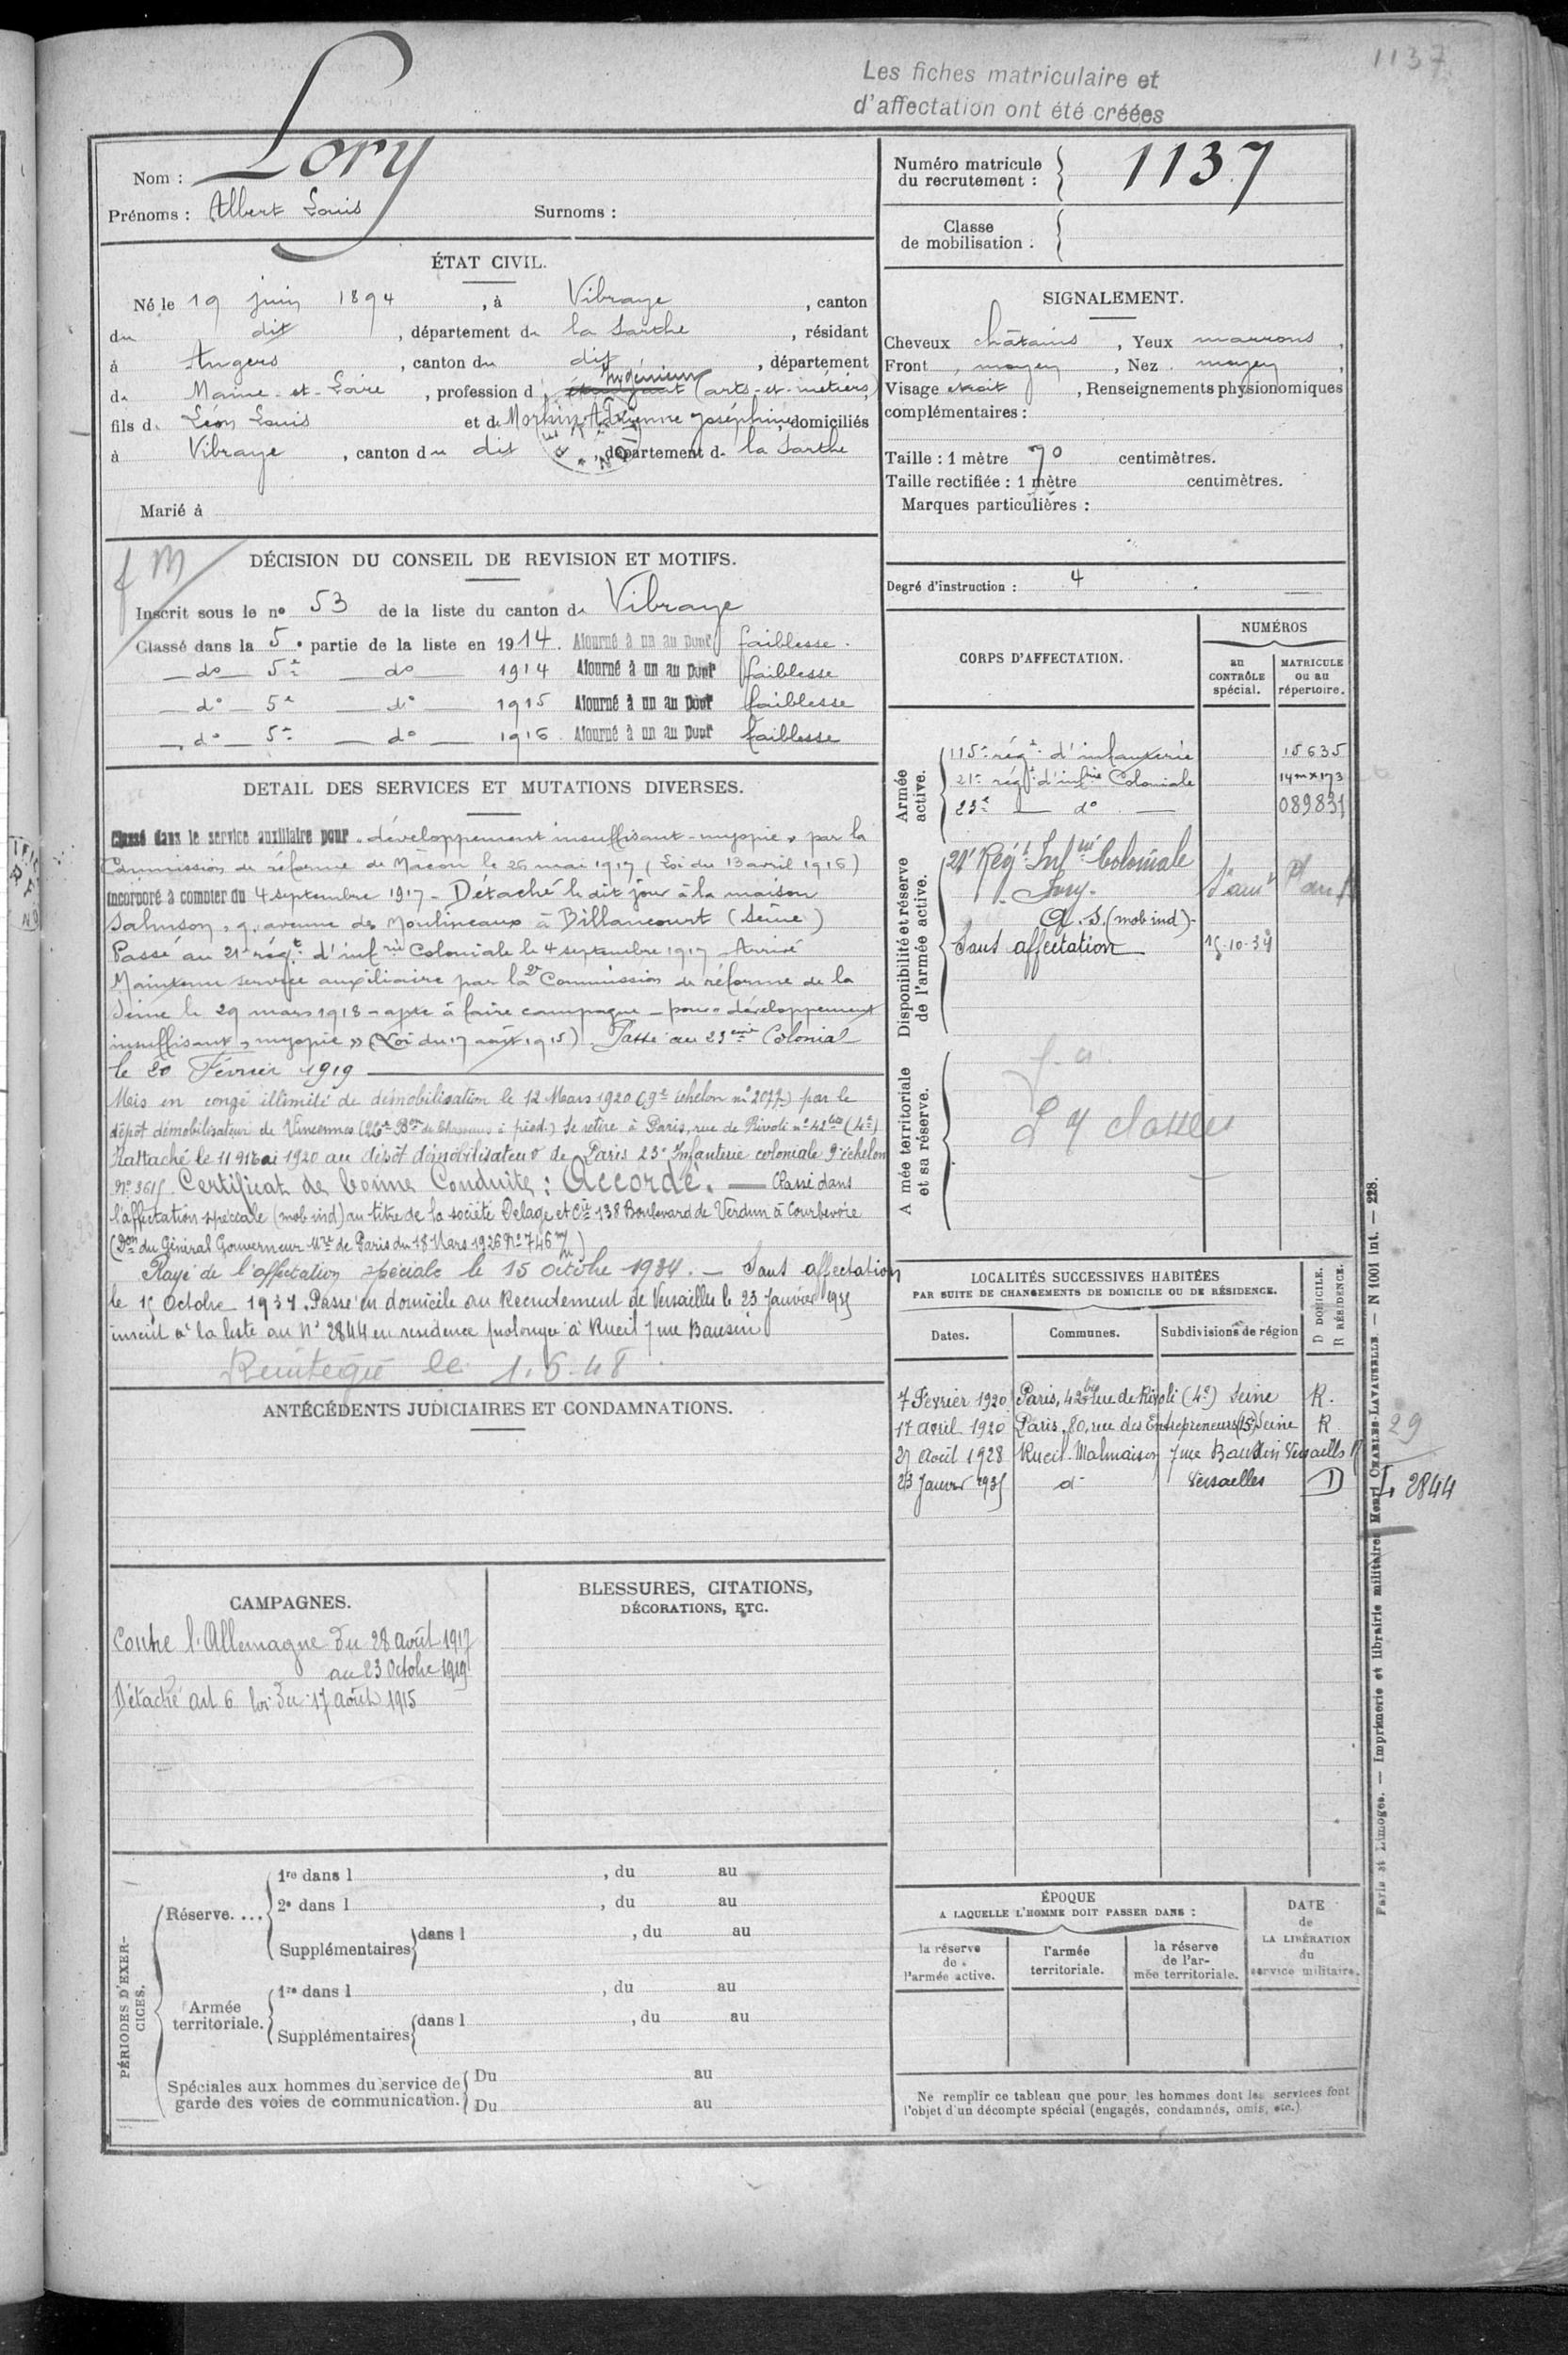 1137
Les fiches matriculaire et
d'affectation ont été créées
Nom : Lory
Prénoms : Albert Louis Surnoms :
Numéro matricule
du recrutement : 1137
Classe
de mobilisation :
ÉTAT CIVIL.
Né le 19 juin 1894, à Vibraye, canton
du dit, département de la Sarthe, résidant
à Angers, canton du dit, département
de Maine-et-Loire, profession d Ingénieur (arts-et-métiers)
fils de Léon Louis et de Adrienne Joséphine, domiciliés
à Vibraye, canton du dit, département de la Sarthe
Marié à
SIGNALEMENT.
Cheveux châtains, Yeux marrons,
Front moyen, Nez moyen,
Visage étroit, Renseignements physionomiques
complémentaires :
Taille : 1 mètre 70 centimètres.
Taille rectifiée : 1 mètre centimètres.
Marques particulières :
Degré d'instruction : 4
DÉCISION DU CONSEIL DE REVISION ET MOTIFS.
Inscrit sous le nº 53 de la liste du canton de Vibraye
Classé dans la 5e partie de la liste en 1914. Ajourné à un an pour faiblesse.
do 5e do 1914 Ajourné à un an pour faiblesse
do 5e do 1915 Ajourné à un an pour faiblesse
do 5e do 1916 Ajourné à un an pour faiblesse
DETAIL DES SERVICES ET MUTATIONS DIVERSES.
Classé dans le service auxiliaire pour "développement insuffisant - myopie" par la
Commission de réforme de Macon le 26 mai 1917 (Loi du 13 avril 1916)
Incorporé à compter du 4 septembre 1917 - Détaché le dit jour à la maison
Salmson, 9, avenue des Moulineaux à Billancourt (Seine)
Passé au 21e régt d'infrie Coloniale le 4 septembre 1917. Arrivé
Maintenu service auxiliaire par la 2e Commission de réforme de la
Seine le 29 mars 1918 - apte à faire campagne - pour "développement
insuffisant, myopie" (Loi du 17 août 1915). Passé au 23eme Colonial
le 20 Février 1919
Mis en congé illimité de démobilisation le 12 Mars 1920 (9e échelon nº 2077) par le
dépôt démobilisateur de Vincennes (26e Bon de Chasseurs à pied.) Se retire à Paris, rue de Rivoli nº 42 bis (4e)
Rattaché le 11 Mai 1920 au dépôt démobilisateur de Paris 23e Infanterie coloniale 9e échelon
Nº 3615. Certificat de bonne Conduite : Accordé. — Classé dans
l'affectation spéciale (mob ind) au titre de la société Delage et Cie 138 Boulevard de Verdun à Courbevoie
(Don du Général Gouverneur Mre de Paris du 18 Mars 1926 Nº 746)
Rayé de l'affectation spéciale le 15 octobre 1934. — Sans affectation
le 15 Octobre 1934. Passé en domicile au Recrutement de Versailles le 23 Janvier 1935
inscrit à la liste au Nº 2844 en residence prolongée à Rueil 7 rue Baudin
Réintégré le 1.6.48
CORPS D'AFFECTATION.
NUMÉROS
au
CONTRÔLE
spécial.
MATRICULE
ou au
répertoire.
Armée
active.
115e régt d'infanterie 15635
21e régt d'infrie Coloniale 14m x 173
23e do 089831
Disponibilité et réserve
de l'armée active.
21e Régt Infrie Coloniale
A. S. (mob ind)
Sans affectation 15-10-34
Armée territoriale
et sa réserve.
ANTÉCÉDENTS JUDICIAIRES ET CONDAMNATIONS.
LOCALITÉS SUCCESSIVES HABITÉES
PAR SUITE DE CHANGEMENTS DE DOMICILE OU DE RÉSIDENCE.
D DOMICILE.
R RÉSIDENCE.
Dates. Communes. Subdivisions de région
7 Février 1920 Paris, 42 bis rue de Rivoli (4e) Seine R.
17 avril 1920 Paris, 80, rue des Entrepreneurs (15e) Seine R
27 Août 1928 Rueil-Malmaison 7 rue Baudin Versailles R
23 Janvier 1935 do Versailles D
29
L 2844
CAMPAGNES.
Contre l'Allemagne du 28 août 1917
au 23 Octobre 1919
Détaché art 6 loi du 17 août 1915
BLESSURES, CITATIONS,
DÉCORATIONS, ETC.
PÉRIODES D'EXERCICES.
Réserve....
1re dans l , du au
2e dans l , du au
Supplémentaires dans l , du au
Armée
territoriale.
1re dans l , du au
Supplémentaires dans l , du au
Spéciales aux hommes du service de
garde des voies de communication.
Du au
Du au
ÉPOQUE
A LAQUELLE L'HOMME DOIT PASSER DANS :
la réserve
de
l'armée active.
l'armée
territoriale.
la réserve
de l'ar-
mée territoriale.
DATE
de
LA LIBÉRATION
du
service militaire.
Ne remplir ce tableau que pour les hommes dont les services font
l'objet d'un décompte spécial (engagés, condamnés, omis, etc.)
Paris et Limoges. — Imprimerie et librairie militaires Henri CHARLES-LAVAUZELLE. — N 1001 Int. — 228.